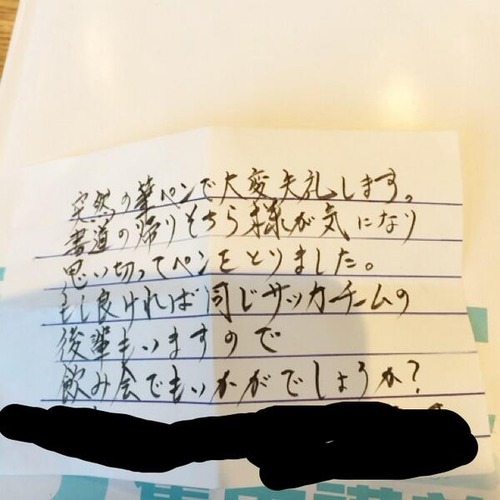 突然の筆ペンで大変失礼します。
書道の帰りそちら様が気になり
思い切ってペンをとりました。
もし良ければ同じサッカーチームの
後輩もいますので
飲み会でもいかがでしょうか?